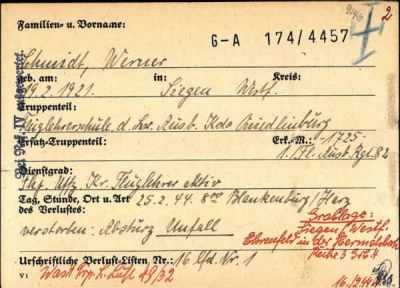 9146
2
Familien- u. Vorname:
G-A 174/4457
Schmidt, Werner
geb. am: in: Kreis:
19.2.1921. Siegen Westf.
Truppenteil:
Fluglehrerschule d. Lw. Ausb. Kdo Quedlinburg
Ersatz-Truppenteil: Erk.-M.: -1725-
1./Fl. Ausb. Rgt. 82
Dienstgrad:
Uffz. Kr. Fluglehrer aktiv
Tag, Stunde, Ort u. Art 25.2.44. 800 Blankenburg/Harz
des Verlustes:
verstorben: Absturz Unfall
Grablage:
Siegen i/Westf.
Ehrenfeld in der Hermelsbach
Reihe 3 Grb. 4
Urschriftliche Verlust-Listen Nr. 16 lfd. Nr. 1
V: Wast Grp. L. Liste 49/32
16.12.44